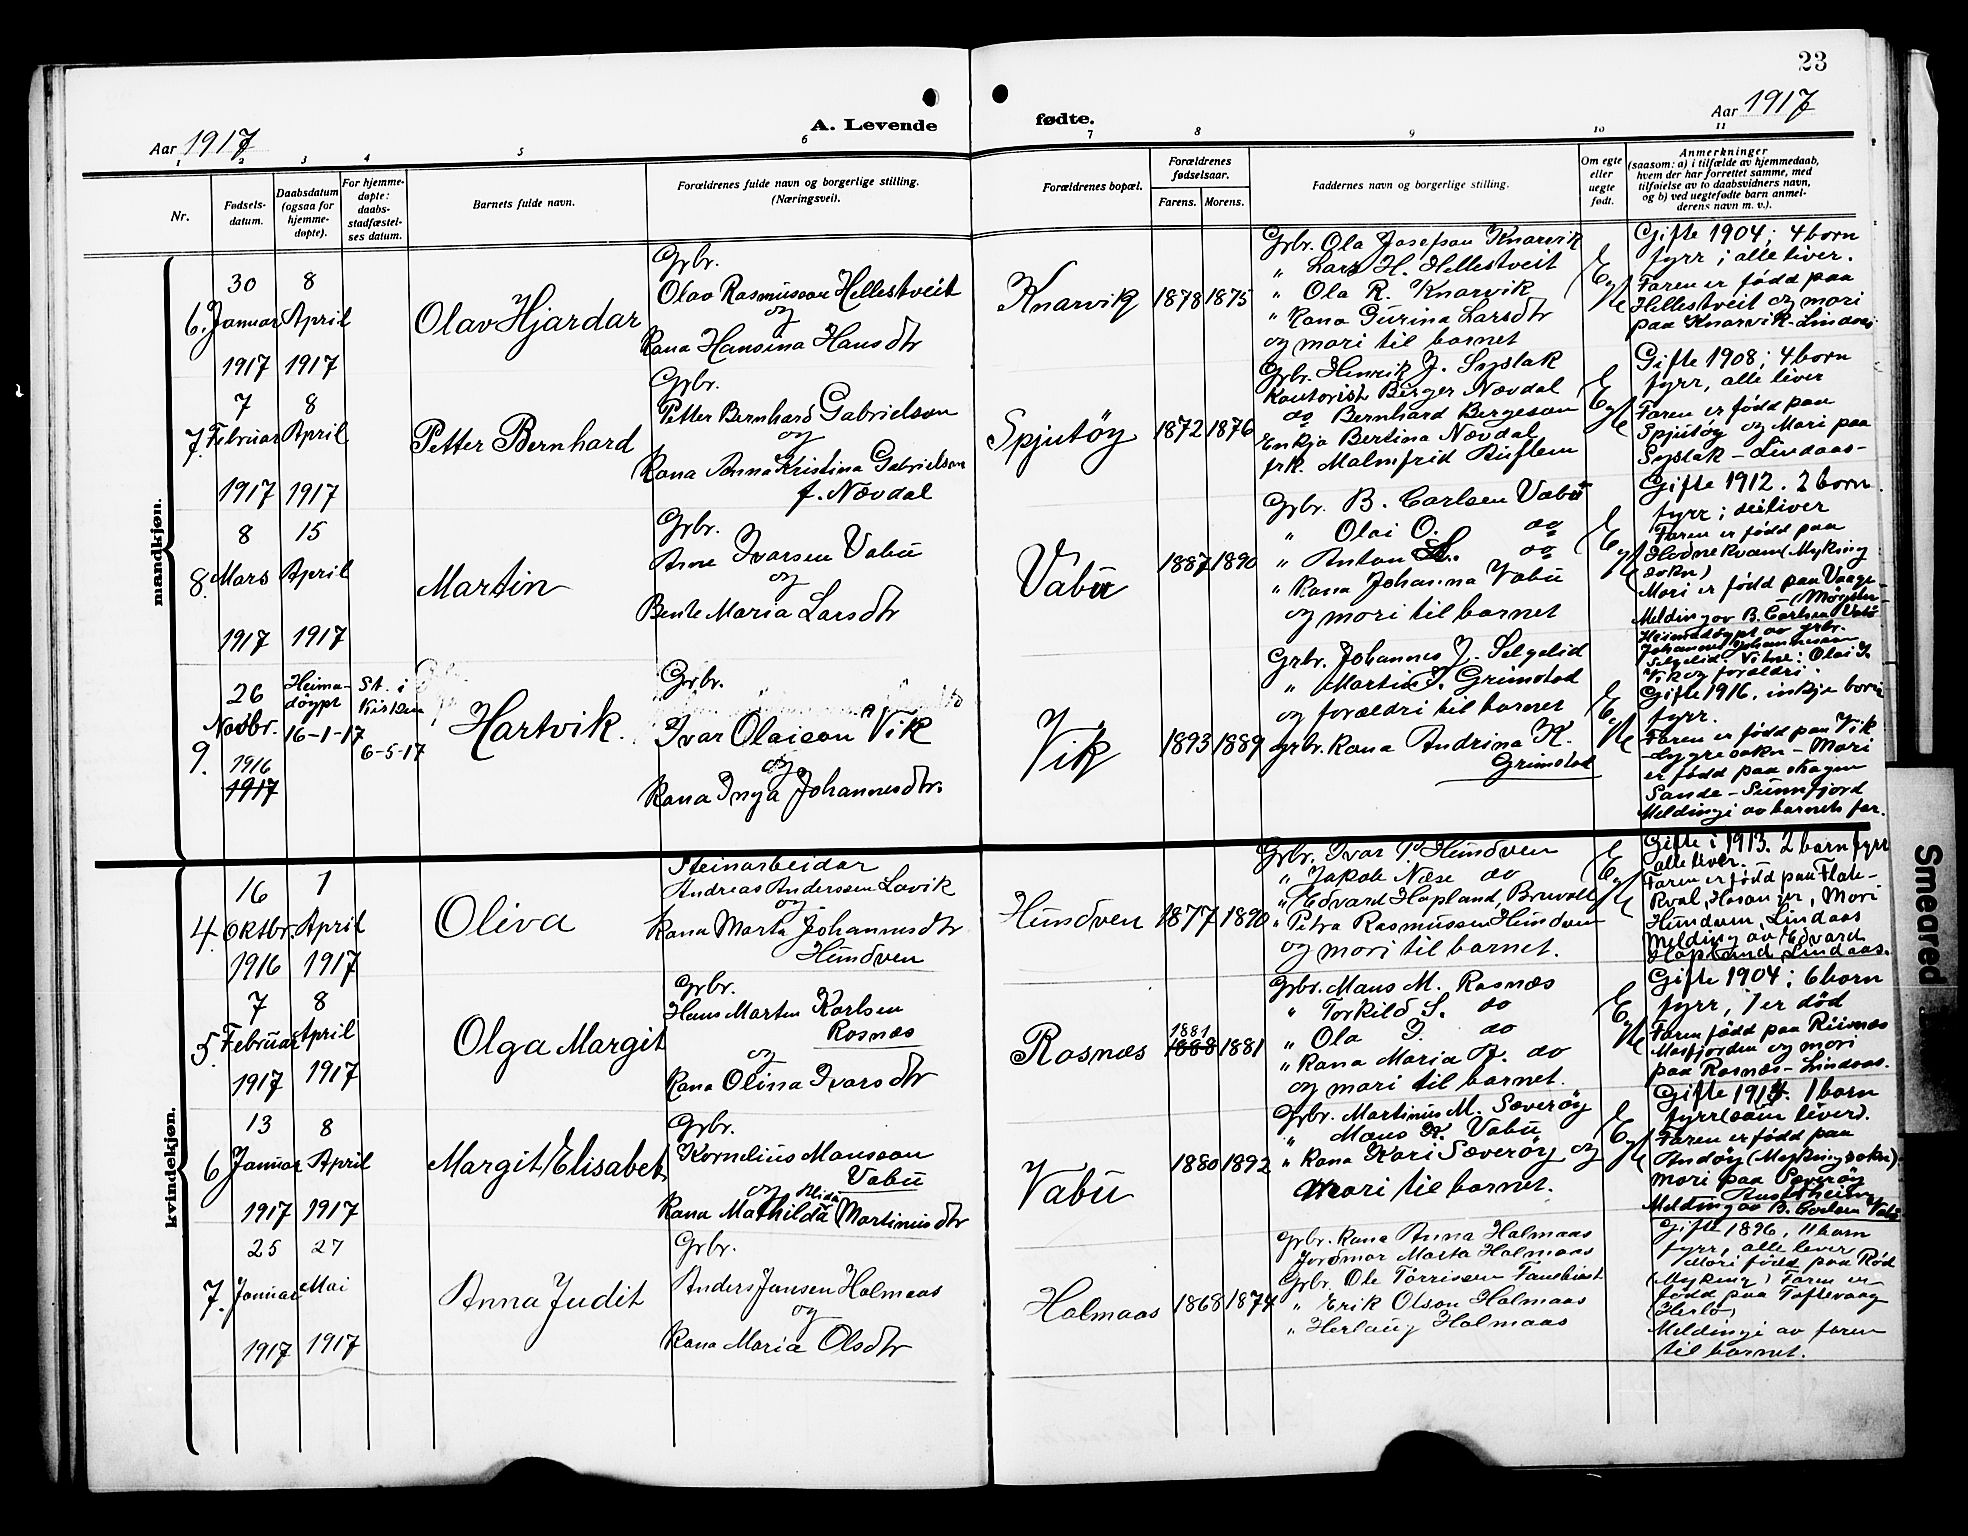 23
Aar 1917
A. Levende
fødte.
Aar 1917
1 2 3 4 5 6 7 8 9 10 11
Nr.
Fødsels-
datum.
Daabsdatum
(ogsaa for
hjemme-
døpte).
For hjemme-
døpte:
daabs-
stadfæstel-
ses datum.
Barnets fulde navn.
Forældrenes fulde navn og borgerlige stilling.
(Næringsvei).
Forældrenes bopæl.
Forældrenes
fødselsaar.
Farens. Morens.
Faddernes navn og borgerlige stilling.
Om egte
eller
uegte
født.
Anmerkninger
(saasom: a) i tilfælde av hjemmedaab,
hvem der har forrettet samme, med
tilføielse av to daabsvidners navn,
og b) ved uegtefødte barn anmel-
derens navn m. v.).
mandkjøn.
6.
30
Januar
1917
8
April
1917
Olav Hjardar
Grbr.
Olav Rasmusson Hellestveit
og
Kona Hansina Hansdtr
Knarvik
1878 1875
Grbr. Ola Josefson Knarvik
" Lars H. Hellestveit
" Ola R. Knarvik
" Kona Gurina Larsdtr
og mori til barnet
Egte
Gifte 1904; 4 born
fyrr; alle liver.
Faren er fødd paa
Hellestveit og mori
paa Knarvik-Lindaas
7.
7
Februar
1917
8
April
1917
Petter Bernhard
Grbr.
Petter Bernhard Gabrielson
og
Kona Anna Kristina Gabrielson
f. Nævdal
Spjutøy
1872 1876
Grbr. Henrik J. Syslak
Kontorist Berger Nævdal
do Bernhard Bergeson
Enkja Bertina Nævdal
frk. Malmfrid
Egte
Gifte 1908; 4 born
fyrr, alle liver
Faren er fødd paa
Spjutøy og Mori paa
Syslak - Lindaas-
8.
8
Mars
1917
15
April
1917
Martin
Grbr.
Arne Ivarsen Vabü
og
Bente Maria Larsdtr
Vabü
1887 1890
Grbr. B. Carlsen Vabü
" Olai O. do
" Anton do
" Kona Johanna Vabü
og mori til barnet
Egte
Gifte 1912. 2 born
fyrr; dei liver
Faren er fødd paa
Hodnekvam (Myking
sokn)
Mori er fødd paa Vaage-
Melding av B. Carlsen Vabü
9.
26
Novbr.
1916
1917
Heima-
døypt
16-1-17
St. i
Kirken
6-5-17
Hartvik.
Grbr.
Ivar Olaison Vik
og
Kona Inga Johannesdtr.
Vik
1893 1889
Grbr. Johannes J. Selgelid
" Martin J. Grimstad
og foreldri til barnet
Grbr. Kona Andrina K.
Grimstad
Egte
Heimadøypt av grbr.
Johannes Johannesson
Selgelid. Vitne: Olai I.
Vik og foreldri
Gifte 1916. inkje born
fyrr.
Faren er fødd paa Vik
-Lygresokn- Mori
er fødd paa Skagen
Sande-Sunnfjord
Meldingi av barnets far.
kvindekjøn.
4.
16
Oktbr.
1916
1
April
1917
Oliva
Steinarbeidar
Andreas Anderssen Lavik
og
Kona Marta Johannesdtr
Hundven
Hundven
1877 1890
Grbr. Ivar P. Hundven
" Jakob Næse do
" Edvard Hopland, Bruvoll
" Petra Rasmussen Hundven
og mori til barnet.
Egte
Gifte i 1913. 2 barn fyrr
alle liver.
Faren er fødd paa Flate-
kval, Hosanger, Mori
Hundven, Lindaas
Melding av Edvard
Hopland, Lindaas.
5.
7
Februar
1917
8
April
1917
Olga Margit
Grbr.
Hans Marten Karlsen
Rosnæs
og
Kona Olina Ivarsdtr
Rosnæs
1881
1888 1881
Grbr. Mons M. Rosnæs
" Torkild S. do
" Ola I. do
" Kona Maria A. do
og mori til barnet.
Egte
Gifte 1904; 6 born
fyrr, 1 er død
Faren fødd paa
Masfjorden og mori
paa Rosnæs-Lindaas.
6
13
Januar
1917
8
April
1917
Margit Elisabet
Grbr.
Kornelius Monsson
Vabü
og
Kona Mathilda Martinusdtr
Vabü
1880 1892
Grbr. Martinus M. Sæverøy
" Mons K. Vabü
" Kona Kari Sæverøy og
Mori til barnet.
Egte
Gifte 1914. 1 born
fyrr (som liver).
Faren er fødd paa
Andøy (Mykingsokn)
mori paa Sæverøy
Austrheim
Melding av B. Carlsen Vabü
7.
25
Januar
1917
27
Mai
1917
Anna Judit
Grbr.
Anders Jansen Holmaas
og
Kona Maria Olsdtr
Holmaas
1868 1874
Grbr. Kona Anna Holmaas
Jordmor Marta Holmaas
Grbr. Ole Torrissen
" Erik Olson Holmaas
" Herlaug Holmaas
Gifte 1896, 11 born
fyrr, alle lever
Mori fødd paa Rød
(Myking) Faren er
fødd paa Toftevaag
(Herlø)
Meldingi av faren
til barnet.
Smeared